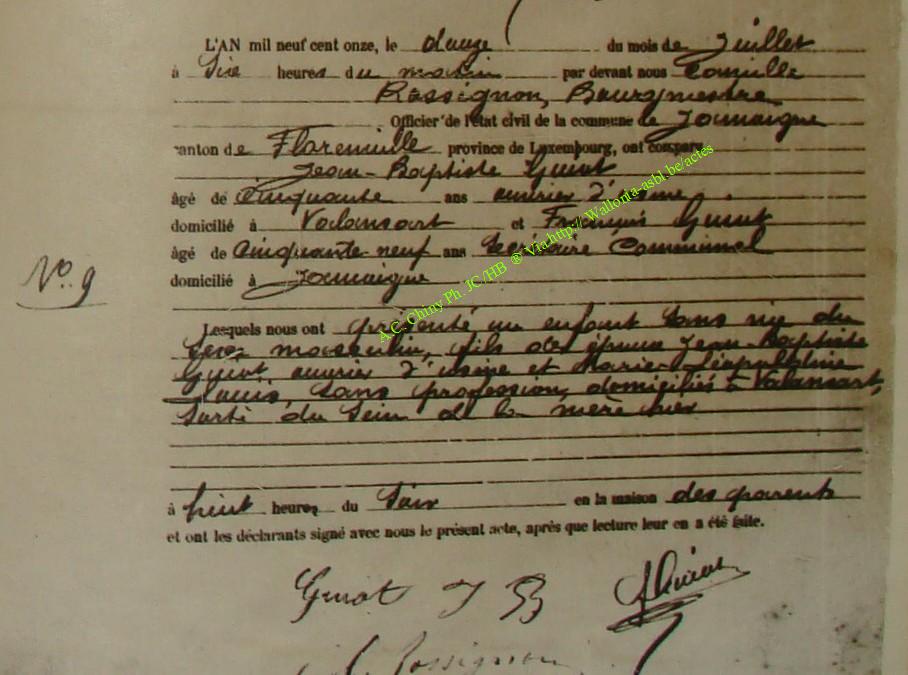 L'AN mil neuf cent onze, le douze du mois de Juillet
à Six heures du matin par devant nous Camille
Rossignon, Bourgmestre
Officier de l'état civil de la commune de Jamoigne
canton de Florenville province de Luxembourg, ont comparu
Jean-Baptiste Guiot
âgé de Cinquante ans ouvrier d'usine
domicilié à Valansart et François Guiot
âgé de Cinquante neuf ans Secrétaire Communal
domicilié à Jamoigne
N° 9
Lesquels nous ont présenté un enfant sans vie du
sexe masculin, fils des époux Jean-Baptiste
Guiot, ouvrier d'usine et Marie-Léopoldine
sans profession, domiciliés à Valansart,
Sorti du Sein de la mère hier
à huit heures du Soir en la maison des parents
et ont les déclarants signé avec nous le présent acte, après que lecture leur en a été faite.
Guiot J B
Rossignon
A.C. Chiny Ph. JC./HB ® Via:http://Wallonia-asbl.be/actes